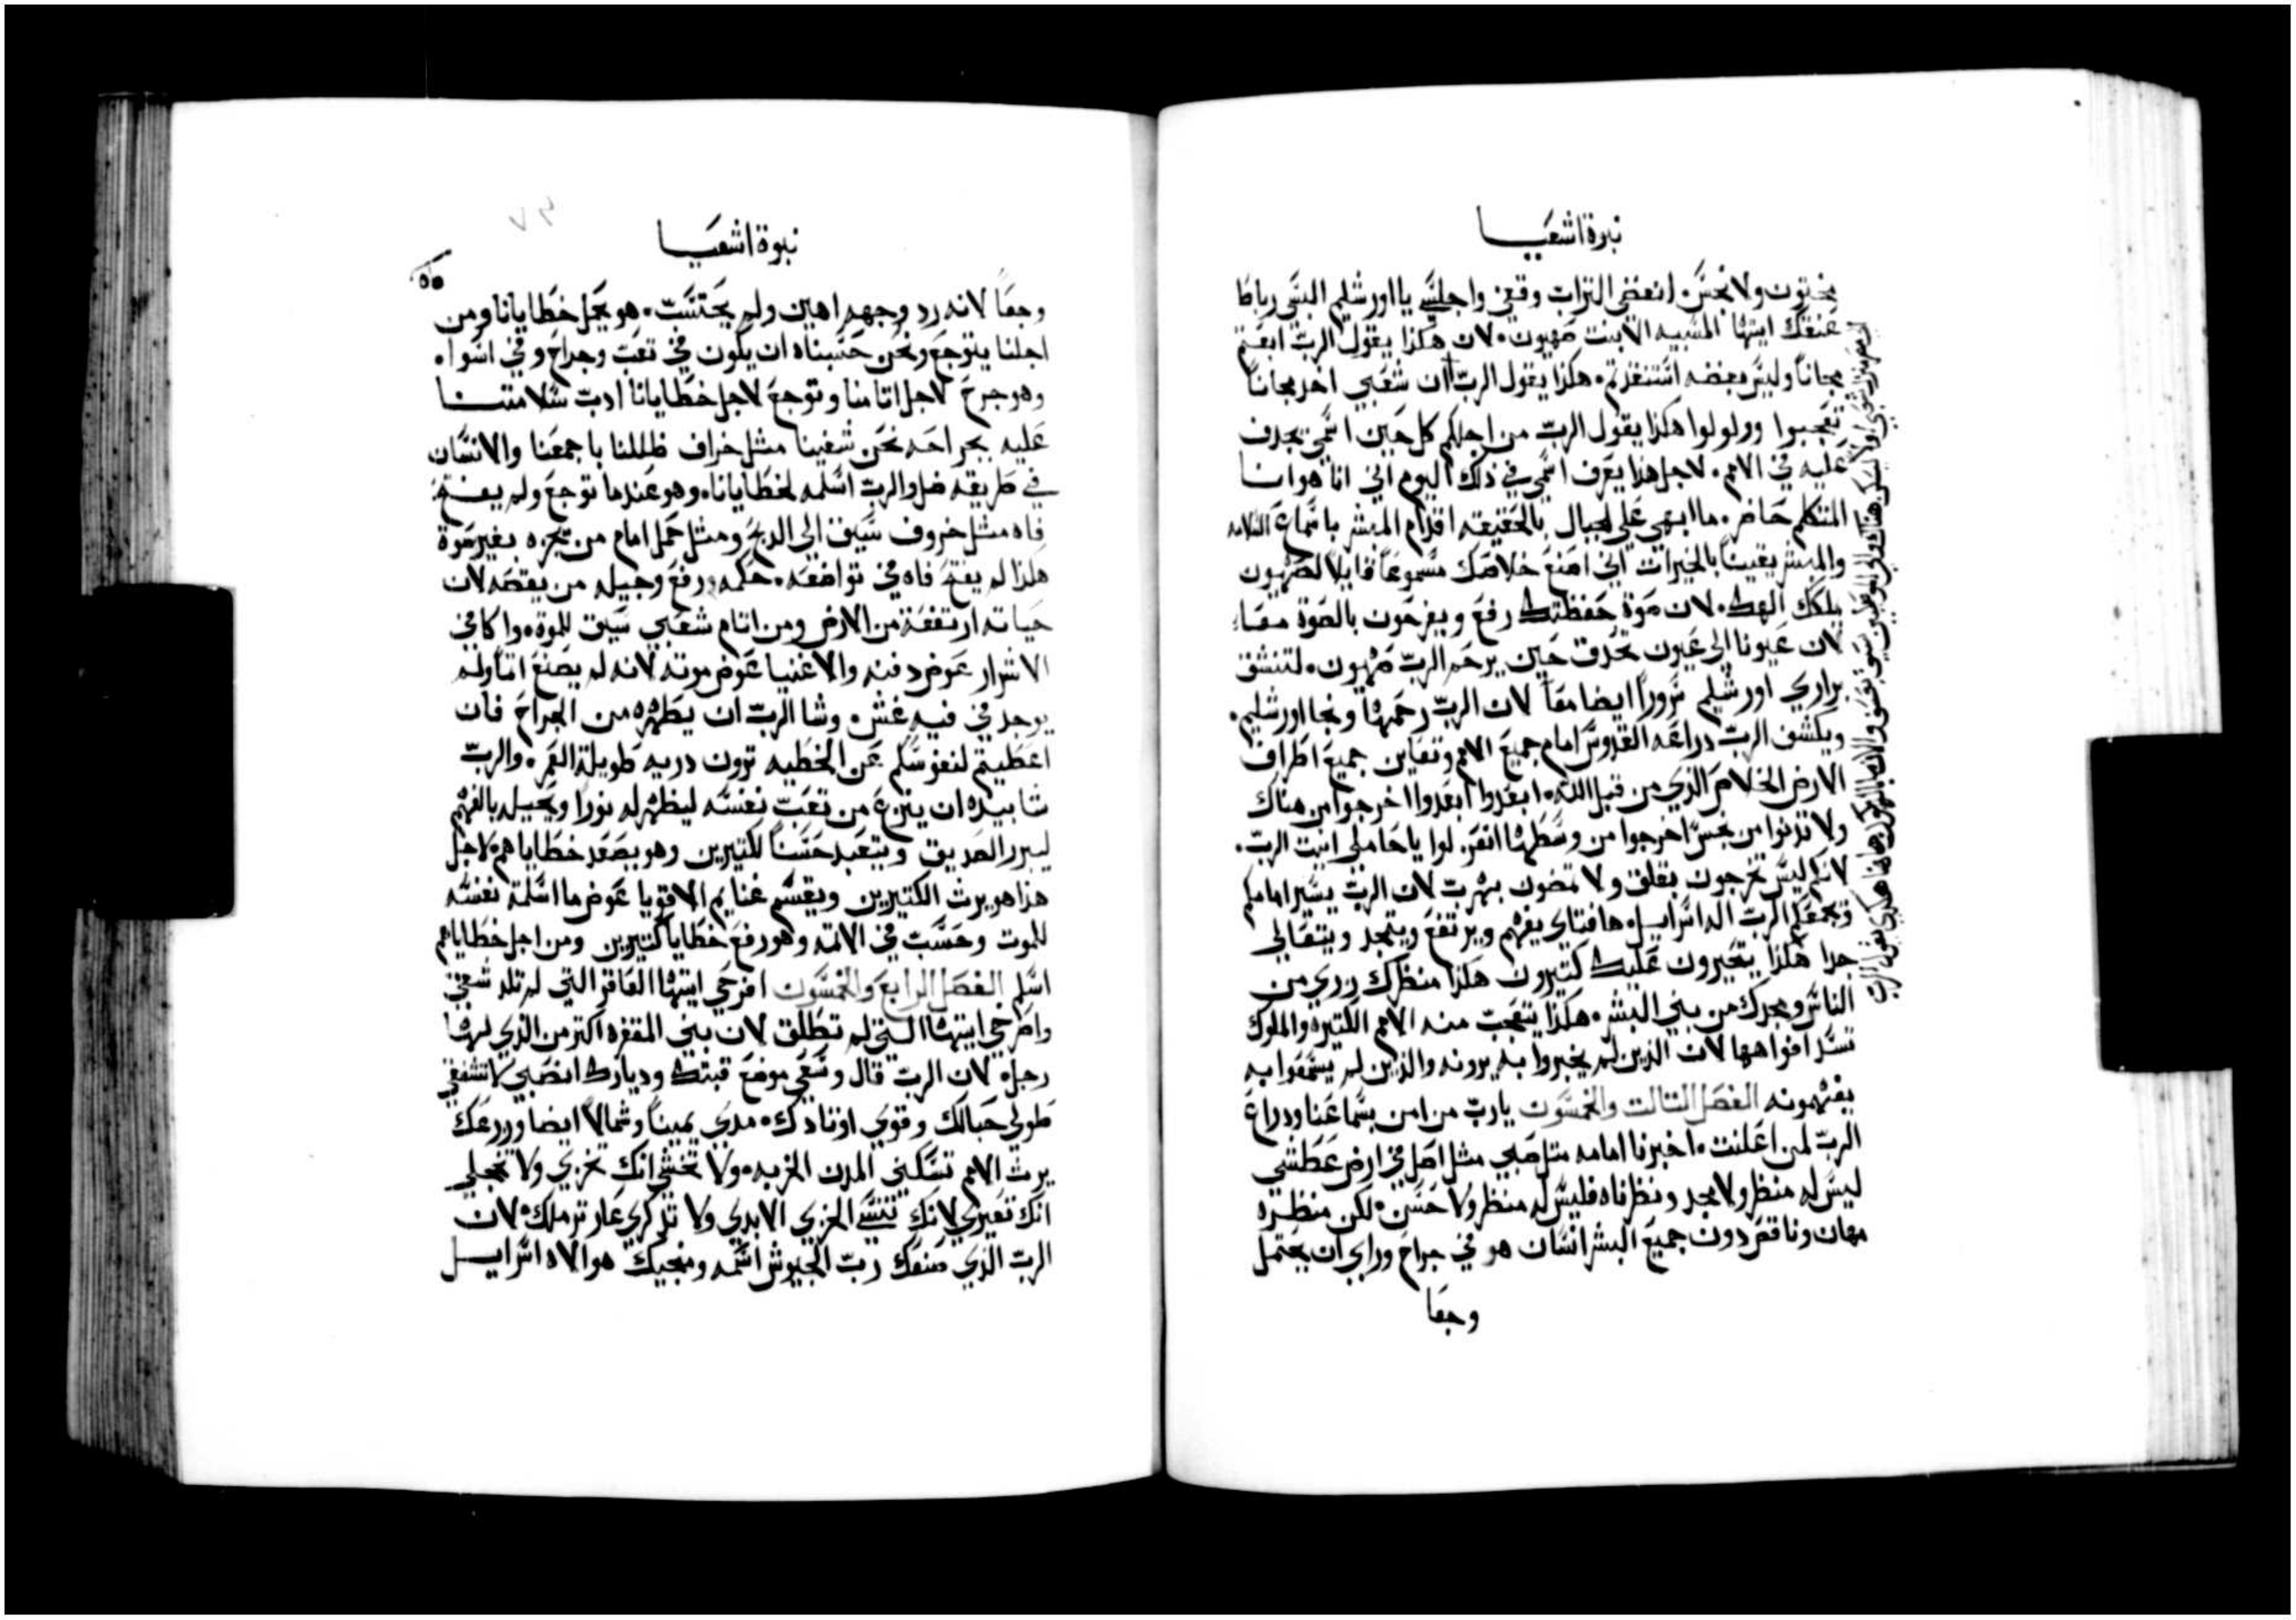 نبوة اشعيا
مختون ولا نجس. انفضي التراب وقفي واجلسي يا اورشليم البسي رباطا
عنقك ايتها المسبيه الابنت صهيون. لان هكذا يقول الرب ابعتم
مجاناً وليس بفضه استنقذتم. هكذا يقول الرب ان شعبي اخد مجاناً
تعجبوا وولولوا هكذا يقول الرب من اجلكم كل حين اسمي يجدف
عليه في الامم. لاجل هذا يعرف اسمي في ذلك اليوم اني انا هو انا
المتكلم حاضر. ما ابهي علي الجبال بالحقيقه اقدام المبشر باسماع السلامه
والمبشر يقيناً بالخيرات اني اصنع خلاصك مسموعاً قايلاً لصهيون
يملك الهك. لان صوة حفظتك رفع ويفرحون بالصوة معاً
لان عيونا الى عيون تحدق حين يرحم الرب صهيون. لتنشق
براري اورشليم سروراً ايضا معاً لان الرب رحمها ونجا اورشليم.
ويكشف الرب دراعه القدوس امام جميع الامم وتعاين جميع اطراف
الارض الخلاص الذي من قبل الله. ابعدوا ابعدوا اخرجوا من هناك
ولا تدنوا من نجس اخرجوا من وسطها انفرلوا يا حاملي انيت الرب.
لانكم ليس تخرجون بقلق ولا تمضون بهرب لان الرب يسير امامكم
وتجمعكم الرب اله اسراييل. ها فتاي يفهم ويرتفع ويتمجد ويتعالي
جدا هكذا يتحيرون عليك كتيرون هكذا منظرك ردي من
الناس ومجدك من بني البشر. هكذا يتعجب منه الامم الكتيره والملوك
تسد افواهها لان الذين لم يخبروا به يرونه والذين لم يسمعوا به
يفهمونه الفصل التالت والخمسون يا رب من امن بسماعنا ودراع
الرب لمن اعلنت. اخبرنا امامه متل صبي مثل اصل في ارض عطشي
ليس له منظر ولا مجد ونظرناه فليس له منظر ولا حسن. لكن منظره
مهان وناقص دون جميع البشر انسان هو في جراح وراي ان يحتمل
وجعا
نبوة اشعيا
وجعاً لانه رد وجهه اهين ولم يحتسب. هو يحمل خطايانا ومن
اجلنا يتوجع ونحن حسبناه ان يكون في تعب وجراح وفي اسواء
وهو جرح لاجل اتامنا وتوجع لاجل خطايانا ادب سلامتنا
عليه بجراحه نحن شفينا مثل خراف ظللنا باجمعنا والانسان
في طريقه ضل والرب اسلمه لخطايانا. وهو عندما توجع ولم يفتح
فاه مثل خروف سيق الى الدبح ومثل حمل امام من يجزه بغير صوة
هكذا لم يفتح فاه في تواضعه. حكمه رفع وجيله من يقتصه لان
حياته ارتفعة من الارض ومن اتام شعبي سيق للموة. واكافي
الاشرار عوض دفنه والاغنيا عوض موته لانه لم يصنع اتماً ولم
يوجد في فيه غش. وشا الرب ان يطهره من الجراح فان
اعطيتم لنفوسكم عن الخطيه ترون دريه طويلة العمر. والرب
شا بيده ان ينزع من تعب نفسه ليظهر له نوراً ويجبيله بالفهم
ليبرر الصديق ويتعبد حسناً للكتيرين وهو يصعد خطاياهم. لاجل
هذا هو يرث الكتيرين ويقسم غنايم الاقويا عوض ما اسلمة نفسه
للموت وحسب في الاتمه وهو رفع خطايا كتيرين ومن اجل خطاياهم
اسلم الفصل الرابع والخمسون افرحي ايتها العاقر التي لم تلد شقي
واصرخي ايتها التي لم تطلق لان بني المقفره اكتر من الذي لها
رجل. لان الرب قال وسعي موضع قبتك وديارك انصبي لا تشفقي
طولي حبالك وقوي اوتادك. مدي يميناً وشمالاً ايضا وزرعك
يرث الامم تسكني المدن الخربه. ولا تخشي انك تخزي ولا تخجلي
انك تعيري لانك تنسي الخزي الابدي ولا تذكري عار ترملك. لان
الرب الذي صنعك رب الجيوش اسمه ومنجيك هو الاه اسراييل